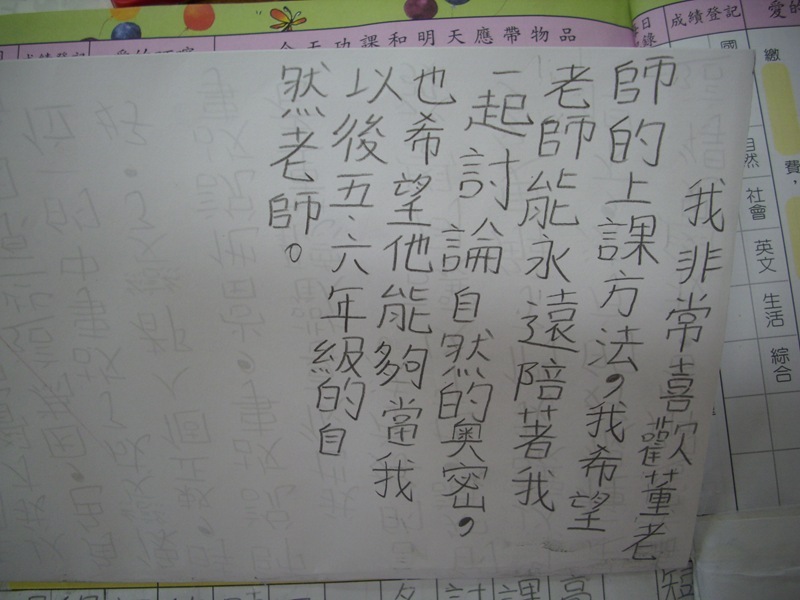 今天功課和明天應帶物品
成績登記
國
自然
社會
英文
生活
綜合
繳
費，
我非常喜歡董老
師的上課方法，我希望
老師能永遠陪著我
一起討論自然的奧密，
也希望他能夠當我
以後五、六年級的自
然老師。